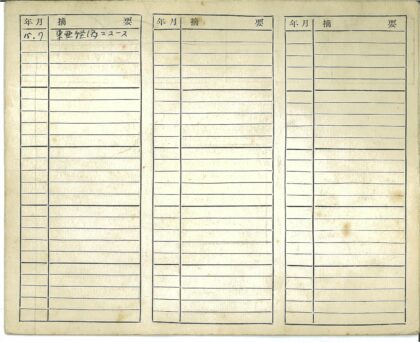 年月 摘要 年月 摘要 年月 摘要
15.7 東亜経済ニュース